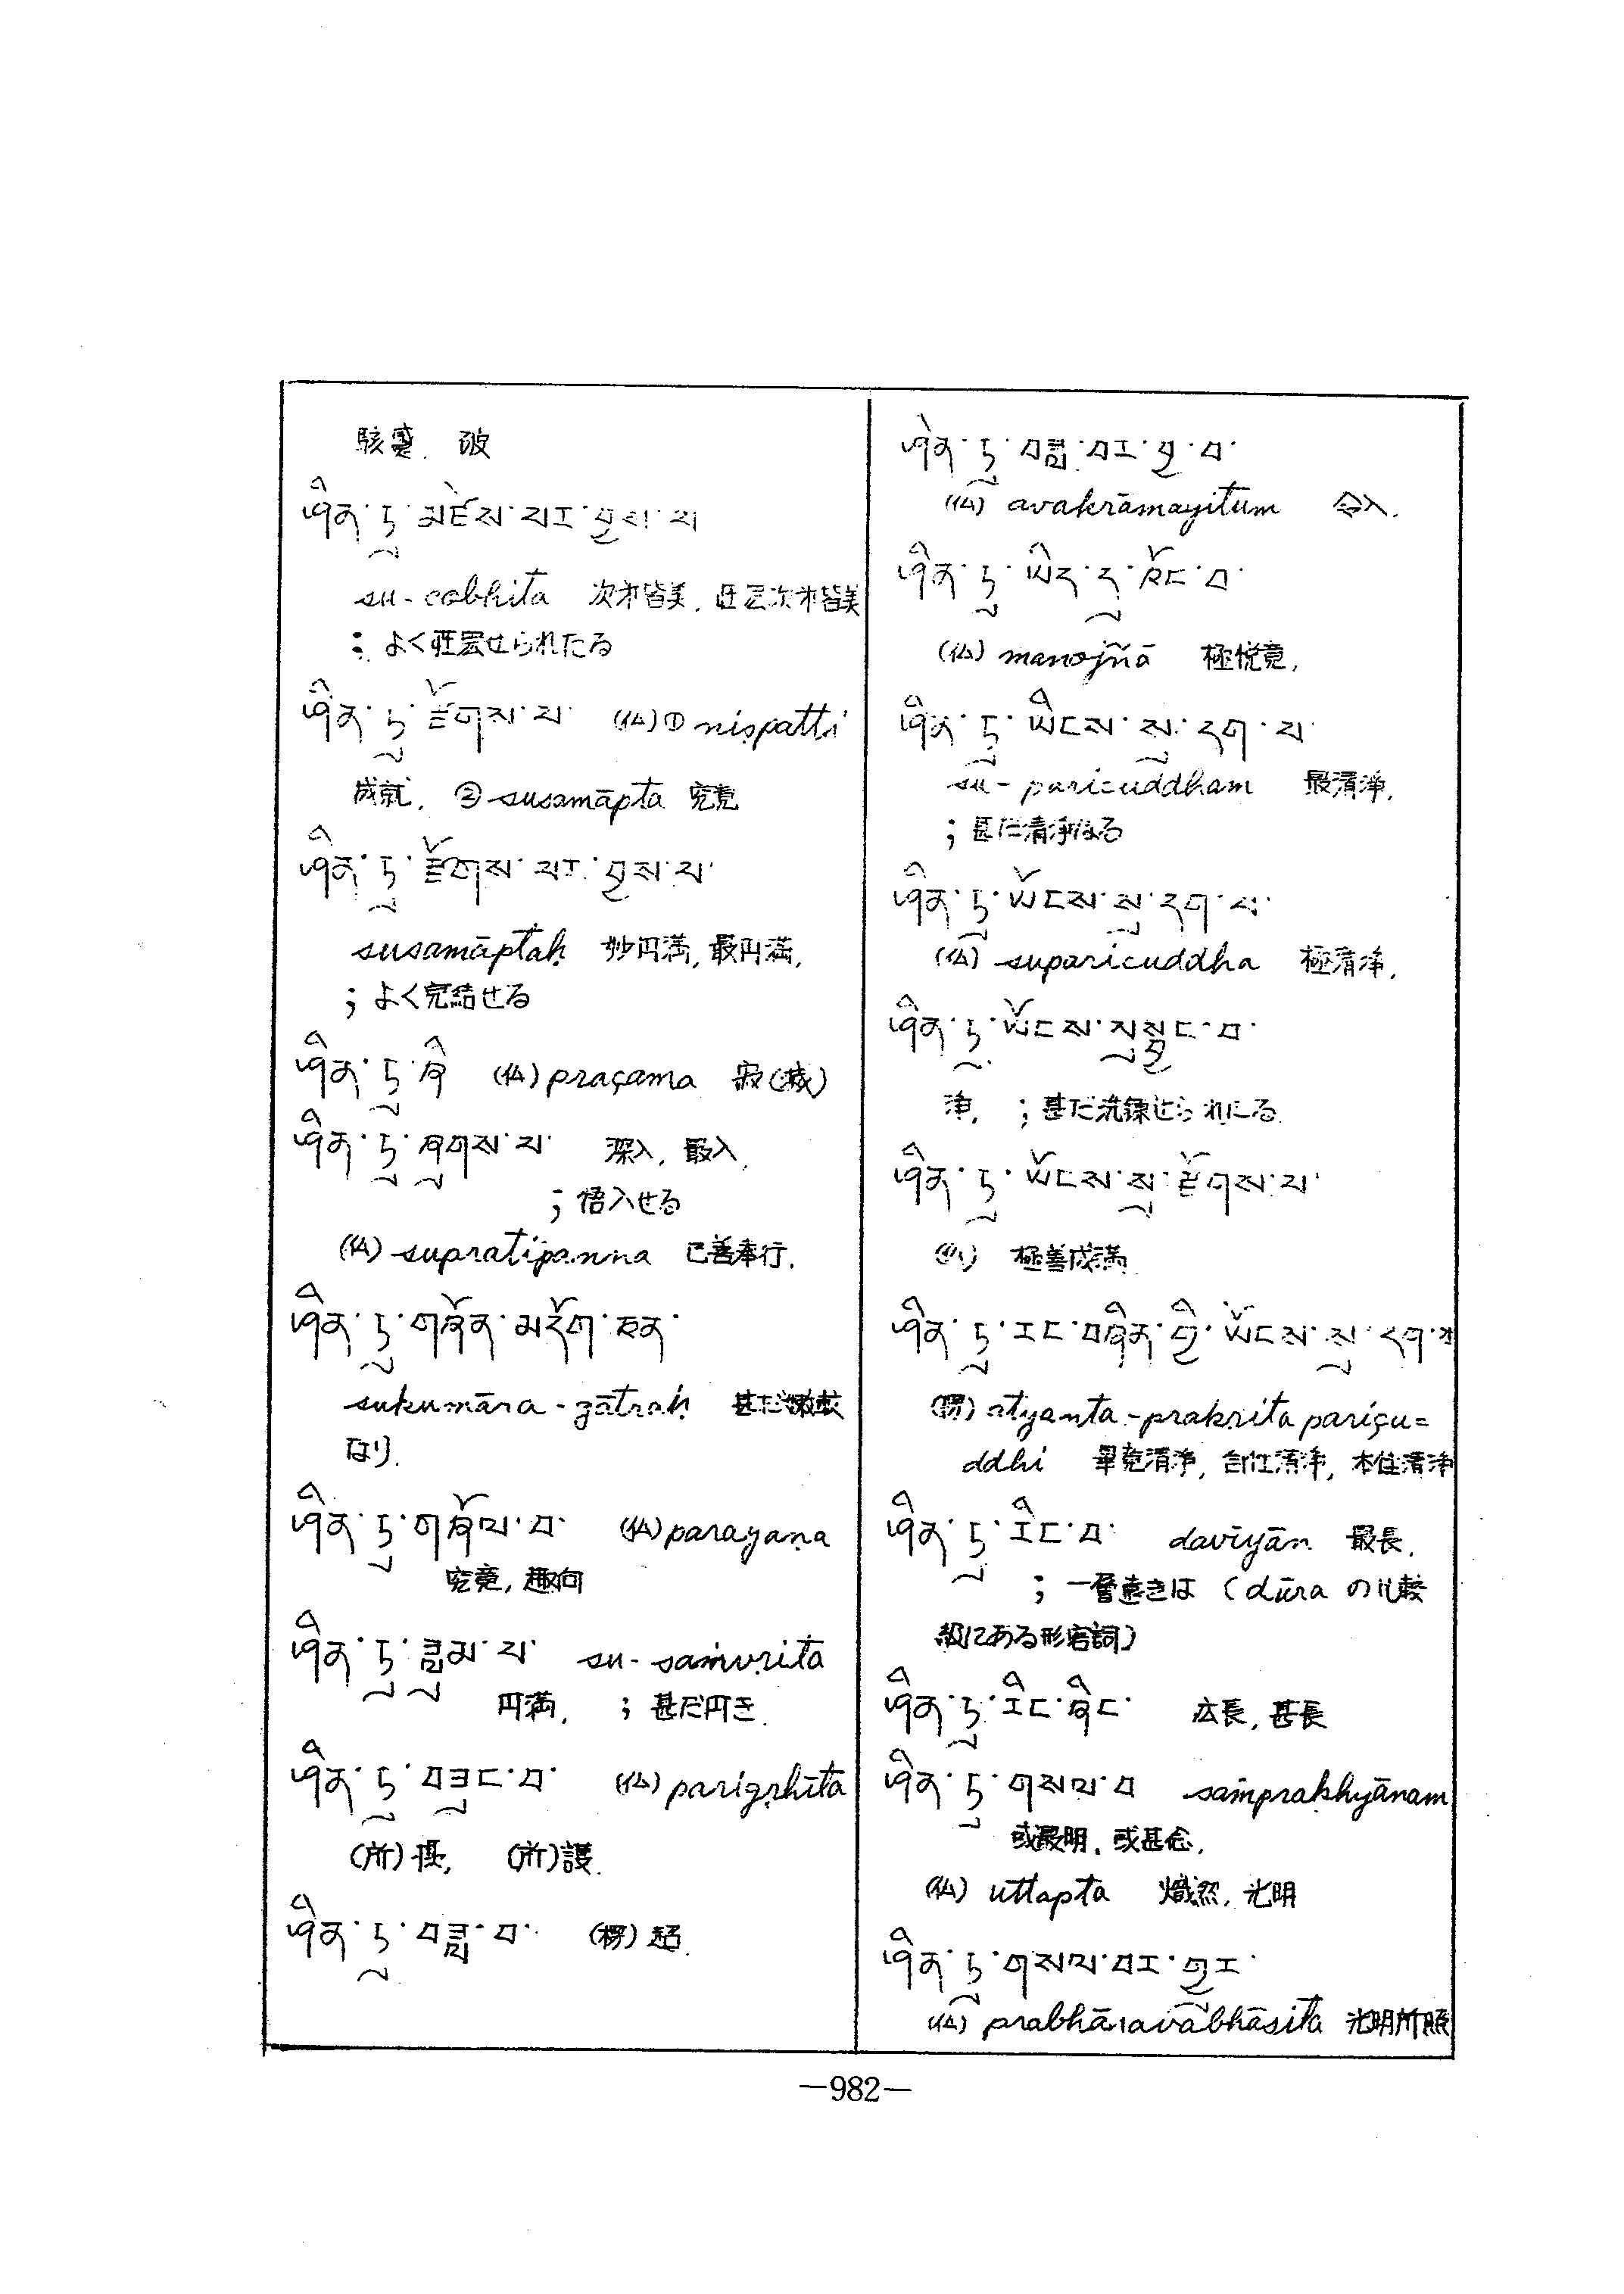 駭 破
ཤིན་ཏུ་མཛེས་པར་བྱས་པ
su-çobhita 次才皆美, 次才皆美
; よく荘宏せられたる
ཤིན་ཏུ་རྫོགས་པ་ (仏)① niṣpatti
成就, ② susamāpta 究竟
ཤིན་ཏུ་རྫོགས་པར་བྱས་པ་
susamāptaḥ 妙円満, 最円満,
; よく完結せる
ཤིན་ཏུ་ཞི (仏) praçama 寂(滅)
ཤིན་ཏུ་ཞུགས་པ་ 深入, 最入,
; 悟入せる
(仏) supratipanna 已善奉行.
ཤིན་ཏུ་གཞོན་མདོག་ཅན་
sukumāra-gātraḥ 甚だ嫩軟
なり.
ཤིན་ཏུ་གཞོལ་བ་ (仏) parayaṇa
究竟, 趣向
ཤིན་ཏུ་ཟླུམ་པ་ su-saṁvṛita
円満, ; 甚だ円き.
ཤིན་ཏུ་བཟུང་བ་ (仏) parigṛhīta
(所)摂, (所)護.
ཤིན་ཏུ་བཟླ་བ་ (楞) 超.
ཤིན་ཏུ་བཟླ་བར་བྱ་བ་
(仏) avakrāmayitum 令入.
ཤིན་ཏུ་ཡིད་དུ་འོང་བ་
(仏) manojñā 極悦意,
ཤིན་ཏུ་ཡིངས་སུ་དག་པ་
su-pariçuddham 最清浄,
; 甚だ清浄なる
ཤིན་ཏུ་ཡོངས་སུ་དག་པ་
(仏) supariçuddha 極清浄,
ཤིན་ཏུ་ཡོངས་སུ་སྦྱང་བ་
浄, ; 甚だ洗錬せられたる.
ཤིན་ཏུ་ཡོངས་སུ་རྫོགས་པ་
極善成満
ཤིན་ཏུ་རང་བཞིན་གྱི་ཡོངས་སུ་དག་པ
(楞) atyanta-prakṛita pariçu=
ddhi 畢竟清浄, 自性清浄, 本住清浄
ཤིན་ཏུ་རིང་བ་ davīyān 最長,
; 一層遠きは (dūra の比較
級にある形容詞)
ཤིན་ཏུ་རིང་ཞིང་ 広長, 甚長
ཤིན་ཏུ་གསལ་བ saṁprakhyānam
或最明, 或甚念,
(仏) uttapta 熾然, 光明
ཤིན་ཏུ་གསལ་བར་གྱུར་
(仏) prabhāvabhāsita 光明所照
—982—